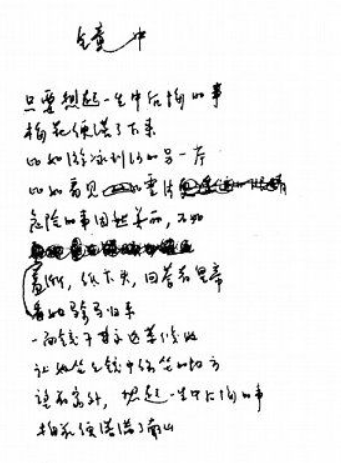 镜中
只要想起一生中后悔的事
梅花便落了下来
比如游泳到河的另一岸
比如看见 雪片
危险的事固然美丽,不如
羞惭,低下头,回答着皇帝
看她骑马归来
一面镜子永远等候她
让她坐到镜中常坐的地方
望着窗外,想起一生中后悔的事
梅花便落满了南山